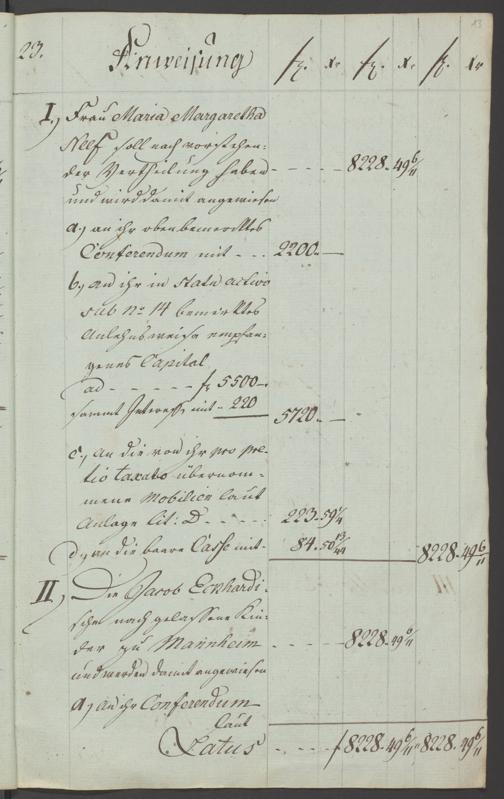 23. Anweisung fl. xr fl. xr fl. xr 13
I.) Frau Maria Margaretha
Neeff soll nach vorstehen:
der Vertheilung haben - - - - 8228.49 6/11
und wird damit angewiesen
a.) an ihr oben bemerktes
Conferendum mit - - - 2200.—
b.) an ihr in statu activo
sub No 14 bemerktes
Anlehnsweise empfan:
genes Capital
ad - - - - - - f. 5500—
sammt Interesse mit - 220 5720.—
c.) an die von ihr pro pre-
tio taxato übernom-
mene Mobilien laut
Anlage Lit: D - - - - 223.59 1/4
d.) an die baare Casse mit- 84.50 13/44 8228.49 6/11
II.) Die Jacob Eckhardi:
sche nachgelassene Kin:
der zu Mannheim - - - - 8228.49 6/11
und werden damit angewiesen
a.) an ihr Conferendum
laut
Latus - - - - f 8228.49 6/11 8228.49 6/11